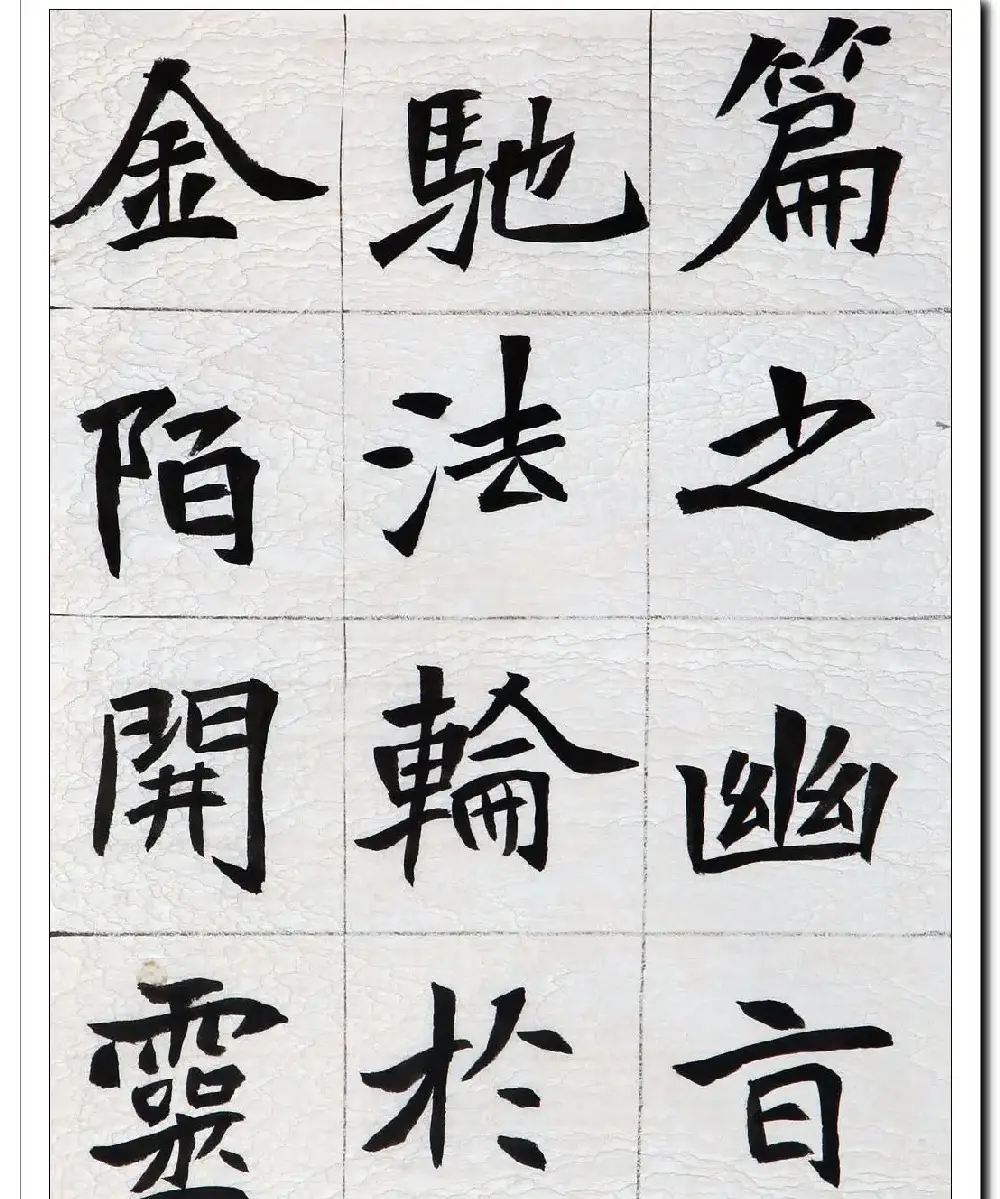 篇之幽㫖
馳法輪於
金陌開靈